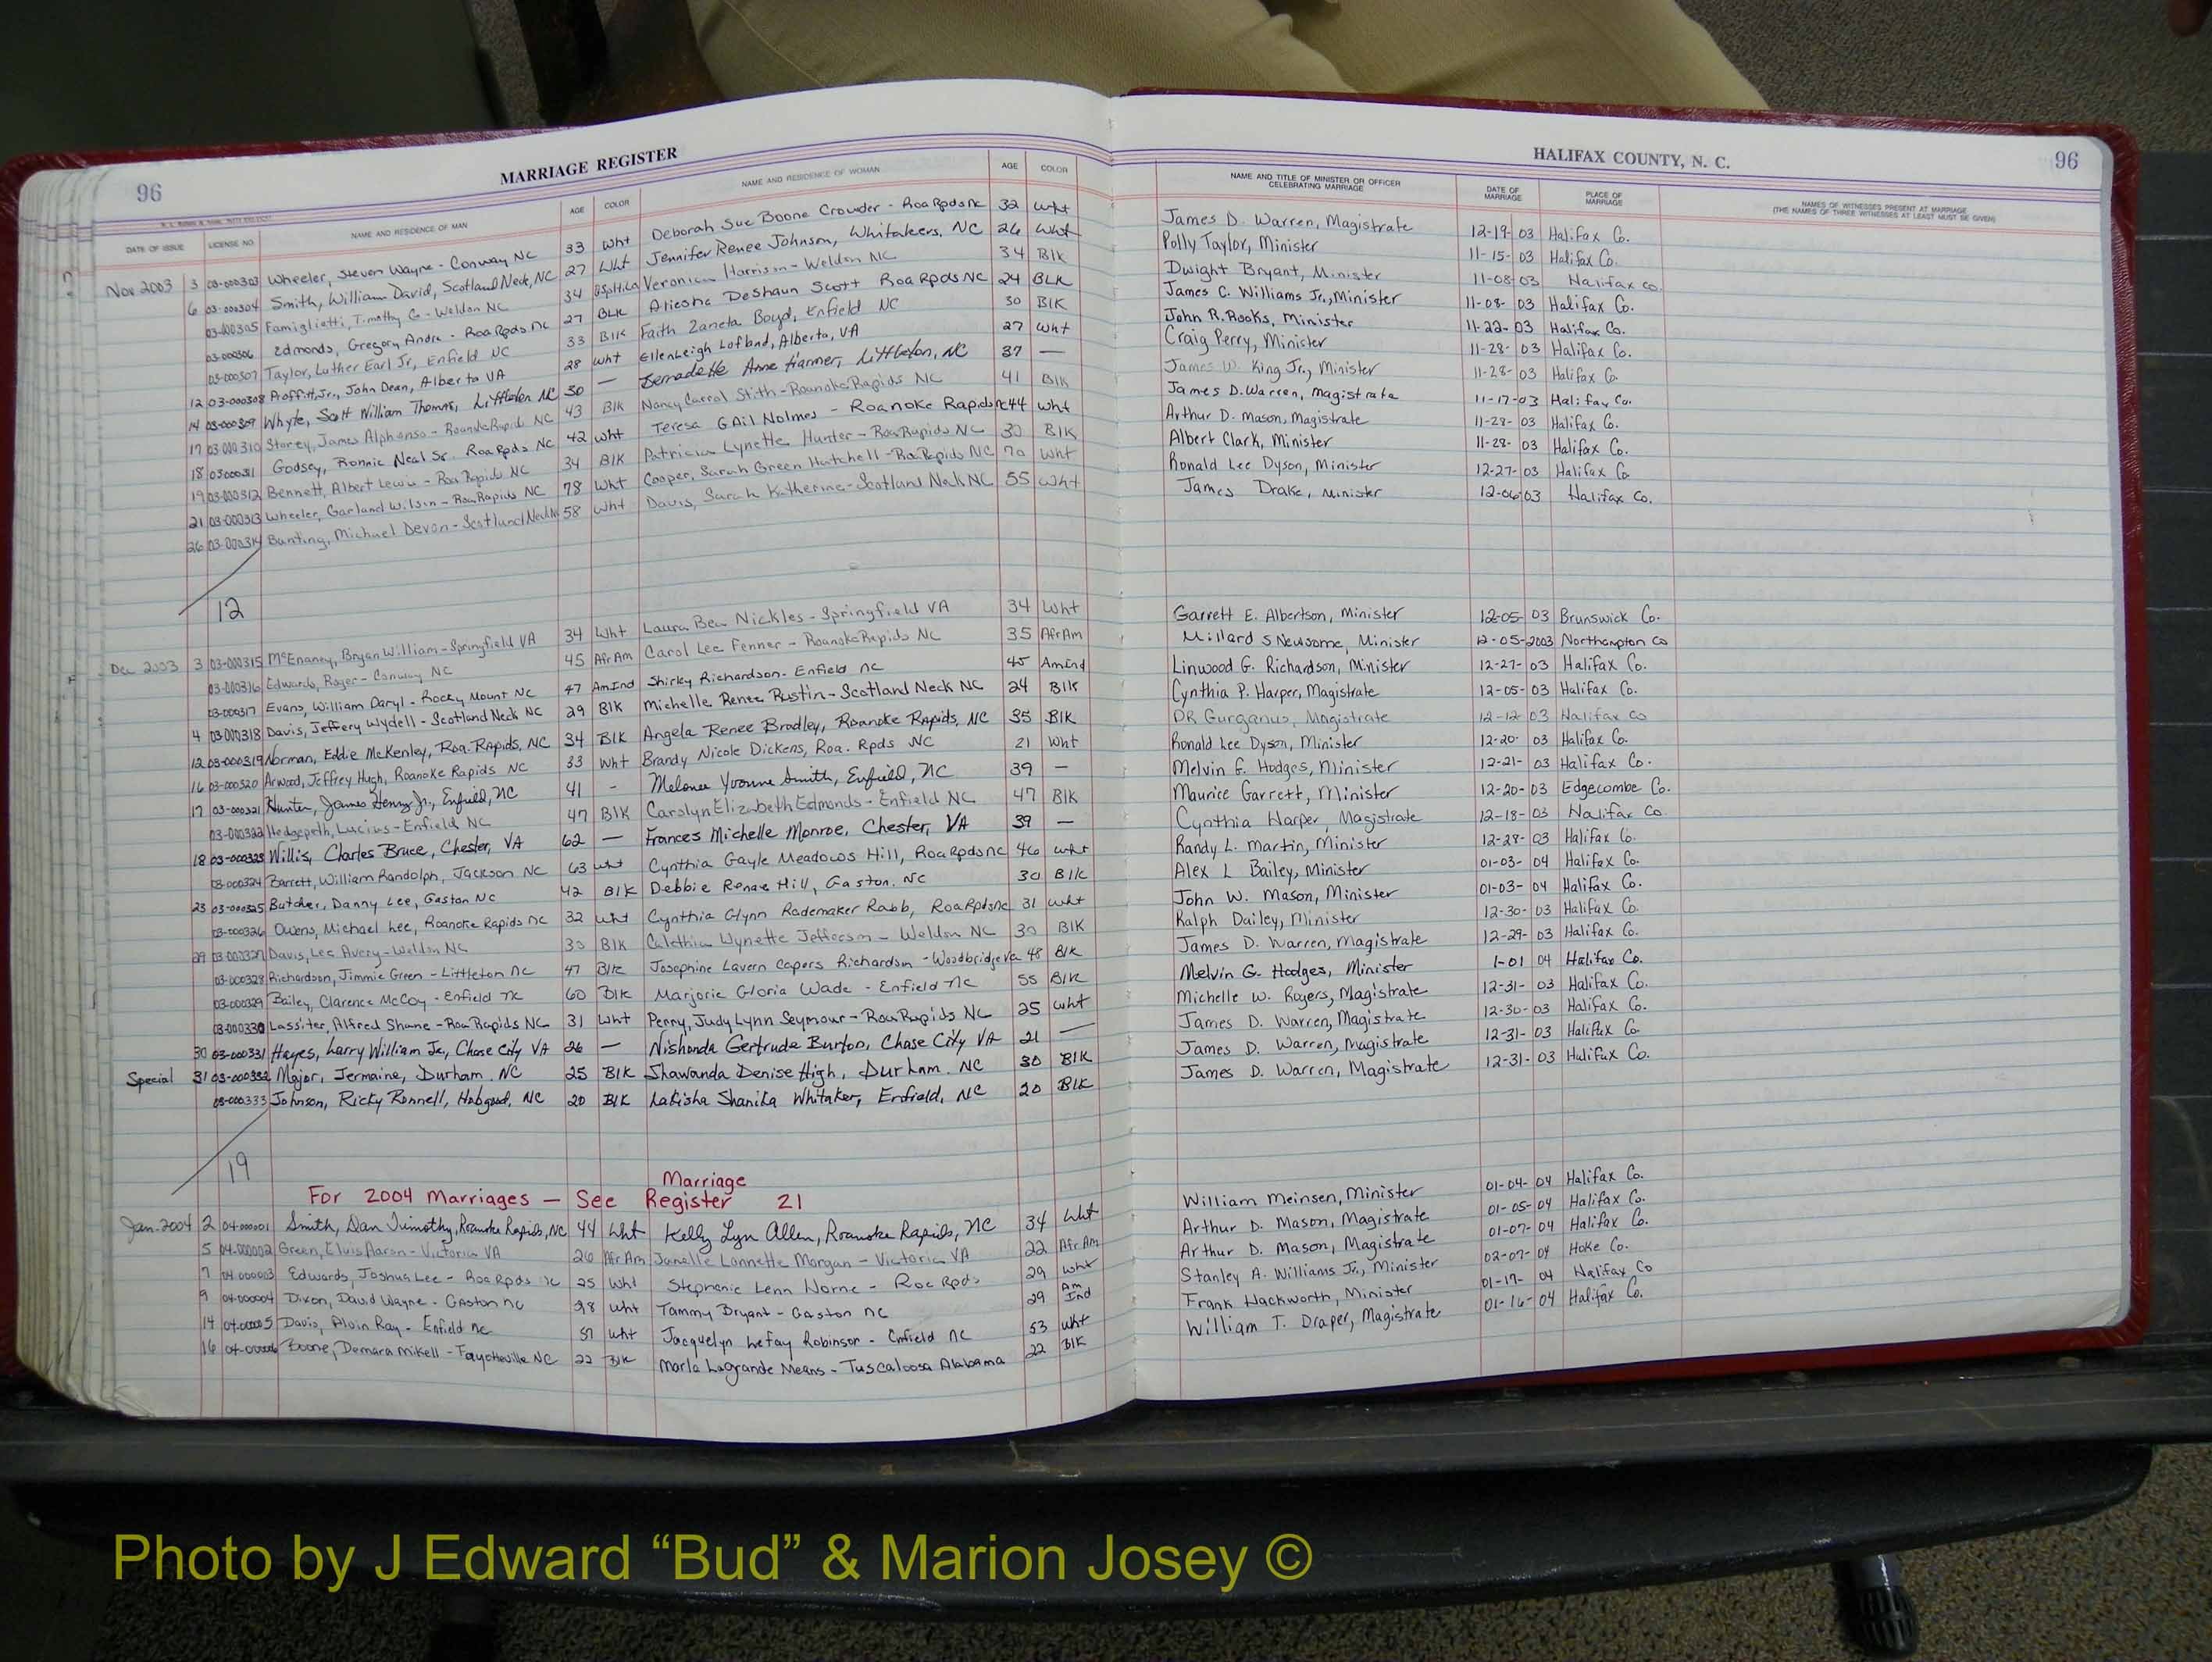 96
MARRIAGE REGISTER
HALIFAX COUNTY, N. C.
96
DATE OF ISSUE LICENSE NO. NAME AND RESIDENCE OF MAN AGE COLOR NAME AND RESIDENCE OF WOMAN AGE COLOR NAME AND TITLE OF MINISTER OR OFFICER CELEBRATING MARRIAGE DATE OF MARRIAGE PLACE OF MARRIAGE NAMES OF WITNESSES PRESENT AT MARRIAGE (THE NAMES OF THREE WITNESSES AT LEAST MUST BE GIVEN)
Nov 2003 3 03-000303 Wheeler, Steven Wayne - Conway NC 33 Wht Deborah Sue Boone Crowder - Roa Rpds NC 32 Wht James D. Warren, Magistrate 12-19-03 Halifax Co.
6 03-000304 Smith, William David, Scotland Neck, NC 27 Wht Jennifer Renee Johnson, Whitakers, NC 26 Wht Polly Taylor, Minister 11-15-03 Halifax Co.
03-000305 Famiglietti, Timothy G - Weldon NC 34 Veronica Harrison - Weldon NC 34 Blk Dwight Bryant, Minister 11-08-03 Halifax Co.
03-000306 Edmonds, Gregory Andre - Roa Rpds NC 27 BLK Atiesha DeShaun Scott Roa Rpds NC 24 BLK James C. Williams Jr., Minister 11-08-03 Halifax Co.
03-000307 Taylor, Luther Earl Jr, Enfield NC 33 Blk Faith Zaneta Boyd, Enfield NC 30 Blk John R. Rooks, Minister 11-22-03 Halifax Co.
12 03-000308 Proffitt, Jr., John Dean, Alberta VA 28 Wht Ellen Leigh Lofland, Alberta, VA 27 Wht Craig Perry, Minister 11-28-03 Halifax Co.
14 03-000309 Whyte, Scott William Thomas, Littleton NC 30 — Bernadette Anne Harmer, Littleton, NC 37 — James W. King Jr., Minister 11-28-03 Halifax Co.
17 03-000310 Storey, James Alphonso - Roanoke Rapids NC 43 Blk Nancy Carrol Stith - Roanoke Rapids NC 41 Blk James D. Warren, Magistrate 11-17-03 Halifax Co.
18 03000311 Godsey, Ronnie Neal Sr. Roa Rpds NC 42 Wht Teresa GAil Nolmes - Roanoke Rapids NC 44 Wht Arthur D. Mason, Magistrate 11-28-03 Halifax Co.
19 03-000312 Bennett, Albert Lewis - Roa Rapids NC 34 Blk Patricia Lynette Hunter - Roa Rapids NC 30 Blk Albert Clark, Minister 11-28-03 Halifax Co.
21 03-000313 Wheeler, Garland Wilson - Roa Rapids NC 78 Wht Cooper, Sarah Green Hutchell - Roa Rapids NC 70 Wht Ronald Lee Dyson, Minister 12-27-03 Halifax Co
26 03-000314 Bunting, Michael Devon - Scotland Neck NC 58 Wht Davis, Sarah Katherine - Scotland Neck NC 55 Wht James Drake, Minister 12-06-03 Halifax Co.
12
Dec 2003 3 03-000315 McEnaney, Bryan William - Springfield VA 34 Wht Laura Bea Nickles - Springfield VA 34 Wht Garrett E. Albertson, Minister 12-05-03 Brunswick Co.
03-000316 Edwards, Roger - Conway NC 45 AfrAm Carol Lee Fenner - Roanoke Rapids NC 35 AfrAm Millard S Newsome, Minister 12-05-2003 Northampton Co
03-000317 Evans, William Daryl - Rocky Mount NC 47 AmInd Shirley Richardson - Enfield NC 45 AmInd Linwood G. Richardson, Minister 12-27-03 Halifax Co.
4 03-000318 Davis, Jeffery Wydell - Scotland Neck NC 29 Blk Michelle Renee Rustin - Scotland Neck NC 24 Blk Cynthia P. Harper, Magistrate 12-05-03 Halifax Co.
12 03-000319 Norman, Eddie McKenley, Roa. Rapids, NC 34 Blk Angela Renee Bradley, Roanoke Rapids, NC 35 Blk DR Gurganus, Magistrate 12-12-03 Halifax Co
16 03-000320 Arwood, Jeffrey Hugh, Roanoke Rapids NC 33 Wht Brandy Nicole Dickens, Roa. Rpds NC 21 Wht Ronald Lee Dyson, Minister 12-20-03 Halifax Co.
17 03-000321 Hunter, James Henry Jr., Enfield, NC 41 - Melonee Yvonne Smith, Enfield, NC 39 — Melvin G. Hodges, Minister 12-21-03 Halifax Co.
03-000322 Hedgepeth, Lucius - Enfield NC 47 Blk Carolyn Elizabeth Edmonds - Enfield NC 47 Blk Maurice Garrett, Minister 12-20-03 Edgecombe Co.
18 03-000323 Willis, Charles Bruce, Chester, VA 62 — Frances Michelle Monroe, Chester, VA 39 — Cynthia Harper, Magistrate 12-18-03 Halifax Co
03-000324 Barrett, William Randolph, Jackson NC 63 Wht Cynthia Gayle Meadows Hill, Roa Rpds NC 46 Wht Randy L. Martin, Minister 12-28-03 Halifax Co.
23 03-000325 Butcher, Danny Lee, Gaston NC 42 Blk Debbie Renae Hill, Gaston, NC 30 Blk Alex L Bailey, Minister 01-03-04 Halifax Co.
03-000326 Owens, Michael Lee, Roanoke Rapids NC 32 Wht Cynthia Glynn Rademaker Rabb, Roa Rpds NC 31 Wht John W. Mason, Minister 01-03-04 Halifax Co.
29 03-000327 Davis, Lee Avery - Weldon NC 30 Blk Calethia Wynette Jefferson - Weldon NC 30 Blk Ralph Dailey, Minister 12-30-03 Halifax Co.
03-000328 Richardson, Jimmie Green - Littleton NC 47 Blk Josephine Lavern Capers Richardson - Woodbridge Va 48 Blk James D. Warren, Magistrate 12-29-03 Halifax Co.
03-000329 Bailey, Clarence McCoy - Enfield NC 60 Blk Marjorie Gloria Wade - Enfield NC 55 Blk Melvin G. Hodges, Minister 1-01 04 Halifax Co.
03-000330 Lassiter, Alfred Shane - Roa Rapids NC 31 Wht Perry, Judy Lynn Seymour - Roa Rapids NC 25 Wht Michelle W. Rogers, Magistrate 12-31-03 Halifax Co.
30 03-000331 Hayes, Larry William Jr., Chase City VA 26 — Nishonda Gertrude Burton, Chase City VA 21 — James D. Warren, Magistrate 12-30-03 Halifax Co.
Special 31 03-000332 Major, Jermaine, Durham, NC 25 Blk Shawanda Denise High, Durham, NC 30 Blk James D. Warren, Magistrate 12-31-03 Halifax Co
03-000333 Johnson, Ricky Ronnell, Hobgood, NC 20 Blk Lakisha Shanika Whitaker, Enfield, NC 20 Blk James D. Warren, Magistrate 12-31-03 Halifax Co.
19
For 2004 Marriages — See Marriage Register 21
Jan. 2004 2 04-000001 Smith, Dan Timothy, Roanoke Rapids, NC 44 Wht Kelly Lyn Allen, Roanoke Rapids, NC 34 Wht William Meinsen, Minister 01-04-04 Halifax Co.
5 04-000002 Green, Elvis Aaron - Victoria VA 26 AfrAm Janelle Lonnette Morgan - Victoria VA 22 AfrAm Arthur D. Mason, Magistrate 01-05-04 Halifax Co.
7 04-000003 Edwards, Joshua Lee - Roa Rpds NC 25 Wht Stephanie Lenn Horne - Roa Rpds 29 Wht Arthur D. Mason, Magistrate 01-07-04 Halifax Co.
9 04-000004 Dixon, David Wayne - Gaston NC 28 Wht Tammy Bryant - Gaston NC 29 Am Ind Stanley A. Williams Jr., Minister 02-07-04 Hoke Co.
14 04-00005 Davis, Alvin Ray - Enfield NC 51 Wht Jacquelyn Lefay Robinson - Enfield NC 53 Wht Frank Hackworth, Minister 01-17-04 Halifax Co
16 04-00006 Boone, Demara Mikell - Fayetteville NC 22 Blk Marla Lagrande Means - Tuscaloosa Alabama 22 Blk William T. Draper, Magistrate 01-16-04 Halifax Co.
Photo by J Edward “Bud” & Marion Josey ©